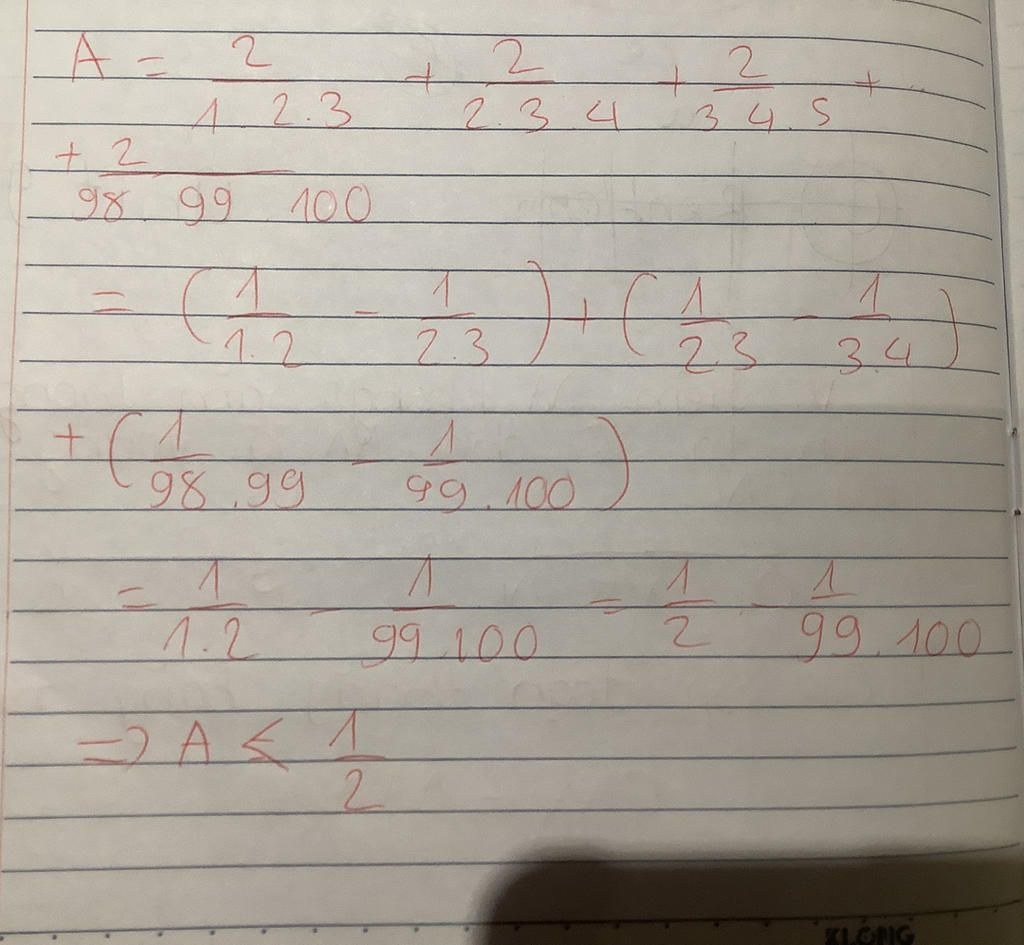 A = 2/(1 2.3) + 2/(2.3.4) + 2/(3 4.5) + ...
+ 2/(98. 99 100)
= (1/(1.2) - 1/(2.3)) + (1/(2 3) - 1/(3.4))
+ (1/(98.99) - 1/(99.100))
= 1/(1.2) - 1/(99.100) = 1/2 - 1/(99.100)
=> A ≤ 1/2
KLONG